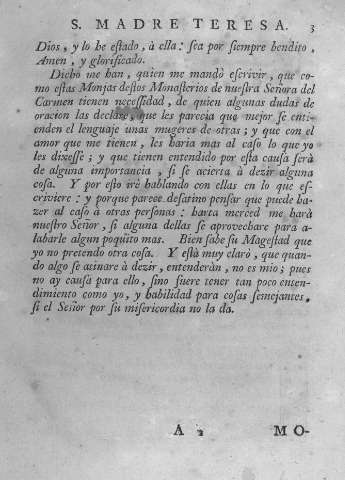 S. MADRE TERESA. 3
Dios, y lo he estado, à ella: sea por siempre bendito,
Amen, y glorificado.
Dicho me han, quien me mandò escrivir, que co-
mo estas Monjas destos Monasterios de nuestra Señora del
Carmen tienen necessidad, de quien algunas dudas de
oracion las declare, que les parecia que mejor se enti-
enden el lenguaje unas mugeres de otras; y que con el
amor que me tienen, les haria mas al caso lo que yo
les dixesse; y que tienen entendido por esta causa serà
de alguna importancia, si se acierta à dezir alguna
cosa. Y por esto irè hablando con ellas en lo que es-
crivìere: y porque parece desatino pensar que puede ha-
zer al caso à otras personas: harta merced me harà
nuestro Señor, si alguna dellas se aprovechare para a-
labarle algun poquito mas. Bien sabe su Magestad que
yo no pretendo otra cosa. Y està muy claro, que quan-
do algo se atinare à dezir, entenderàn, no es mio; pues
no ay causa para ello, sino fuere tener tan poco enten-
dimiento como yo, y habilidad para cosas semejantes,
si el Señor por su misericordia no la da.
A 2 MO-